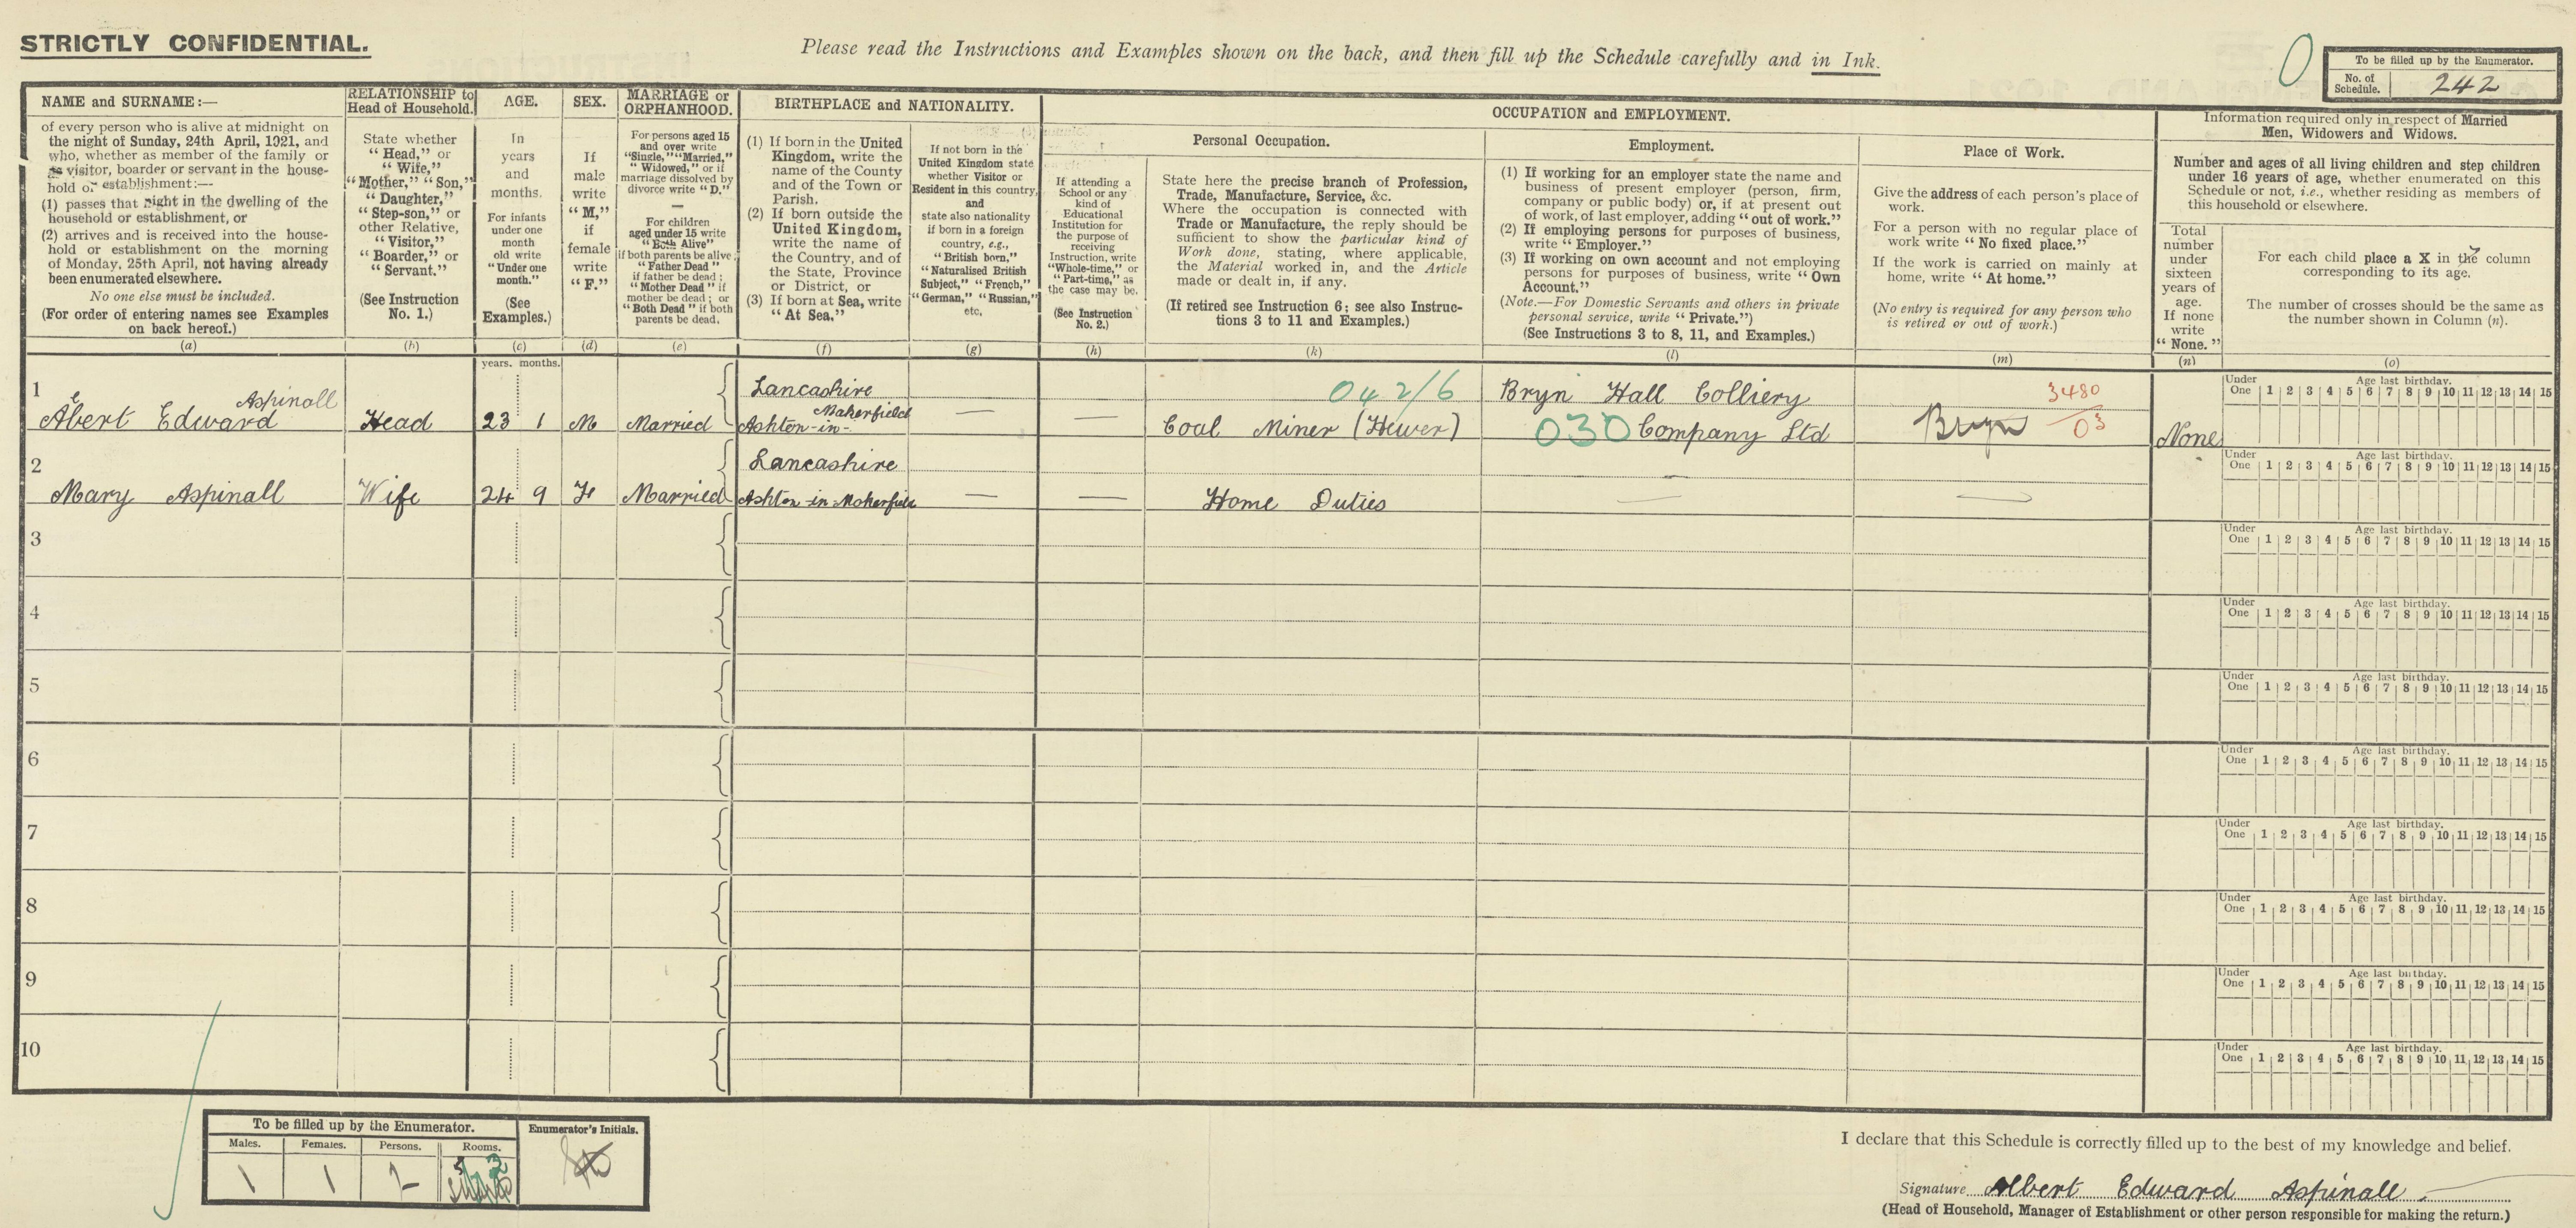 STRICTLY CONFIDENTIAL.
Please read the Instructions and Examples shown on the back, and then fill up the Schedule carefully and in Ink.
0
To be filled up by the Enumerator.
No. of Schedule. 242
NAME and SURNAME:—
of every person who is alive at midnight on
the night of Sunday, 24th April, 1921, and
who, whether as member of the family or
as visitor, boarder or servant in the house-
hold or establishment:—
(1) passes that night in the dwelling of the
household or establishment, or
(2) arrives and is received into the house-
hold or establishment on the morning
of Monday, 25th April, not having already
been enumerated elsewhere.
No one else must be included.
(For order of entering names see Examples
on back hereof.)
(a)
RELATIONSHIP to
Head of Household.
State whether
"Head," or
"Wife,"
"Mother," "Son,"
"Daughter,"
"Step-son," or
other Relative,
"Visitor,"
"Boarder," or
"Servant."
(See Instruction
No. 1.)
(b)
AGE.
In
years
and
months.
For infants
under one
month
old write
"Under one
month."
(See
Examples.)
(c)
SEX.
If
male
write
"M,"
if
female
write
"F."
(d)
MARRIAGE or
ORPHANHOOD.
For persons aged 15
and over write
"Single," "Married,"
"Widowed," or if
marriage dissolved by
divorce write "D."
—
For children
aged under 15 write
"Both Alive"
if both parents be alive;
"Father Dead"
if father be dead;
"Mother Dead" if
mother be dead; or
"Both Dead" if both
parents be dead.
(e)
BIRTHPLACE and NATIONALITY.
(1) If born in the United
Kingdom, write the
name of the County
and of the Town or
Parish.
(2) If born outside the
United Kingdom,
write the name of
the Country, and of
the State, Province
or District, or
(3) If born at Sea, write
"At Sea."
(f)
If not born in the
United Kingdom state
whether Visitor or
Resident in this country,
and
state also nationality
if born in a foreign
country, e.g.,
"British born,"
"Naturalised British
Subject," "French,"
"German," "Russian,"
etc.
(g)
OCCUPATION and EMPLOYMENT.
If attending a
School or any
kind of
Educational
Institution for
the purpose of
receiving
Instruction, write
"Whole-time," or
"Part-time," as
the case may be.
(See Instruction
No. 2.)
(h)
Personal Occupation.
State here the precise branch of Profession,
Trade, Manufacture, Service, &c.
Where the occupation is connected with
Trade or Manufacture, the reply should be
sufficient to show the particular kind of
Work done, stating, where applicable,
the Material worked in, and the Article
made or dealt in, if any.
(If retired see Instruction 6; see also Instruc-
tions 3 to 11 and Examples.)
(k)
Employment.
(1) If working for an employer state the name and
business of present employer (person, firm,
company or public body) or, if at present out
of work, of last employer, adding "out of work."
(2) If employing persons for purposes of business,
write "Employer."
(3) If working on own account and not employing
persons for purposes of business, write "Own
Account."
(Note.—For Domestic Servants and others in private
personal service, write "Private.")
(See Instructions 3 to 8, 11, and Examples.)
(l)
Place of Work.
Give the address of each person's place of
work.
For a person with no regular place of
work write "No fixed place."
If the work is carried on mainly at
home, write "At home."
(No entry is required for any person who
is retired or out of work.)
(m)
Information required only in respect of Married
Men, Widowers and Widows.
Number and ages of all living children and step children
under 16 years of age, whether enumerated on this
Schedule or not, i.e., whether residing as members of
this household or elsewhere.
Total
number
under
sixteen
years of
age.
If none
write
"None."
(n)
For each child place a X in the column
corresponding to its age.
The number of crosses should be the same as
the number shown in Column (n).
(o)
years. months.
1
Abert Edward Aspinall
Head
23 1
M
Married
Lancashire
Ashton-in-Makerfield
—
—
042/6
Coal Miner (Hewer)
Bryn Hall Colliery
030 Company Ltd
Bryn
3480
03
None
Under One Age last birthday. 1 2 3 4 5 6 7 8 9 10 11 12 13 14 15
2
Mary Aspinall
Wife
24 9
F
Married
Lancashire
Ashton-in-Makerfield
—
—
Home Duties
—
—
Under One Age last birthday. 1 2 3 4 5 6 7 8 9 10 11 12 13 14 15
3
Under One Age last birthday. 1 2 3 4 5 6 7 8 9 10 11 12 13 14 15
4
Under One Age last birthday. 1 2 3 4 5 6 7 8 9 10 11 12 13 14 15
5
Under One Age last birthday. 1 2 3 4 5 6 7 8 9 10 11 12 13 14 15
6
Under One Age last birthday. 1 2 3 4 5 6 7 8 9 10 11 12 13 14 15
7
Under One Age last birthday. 1 2 3 4 5 6 7 8 9 10 11 12 13 14 15
8
Under One Age last birthday. 1 2 3 4 5 6 7 8 9 10 11 12 13 14 15
9
Under One Age last birthday. 1 2 3 4 5 6 7 8 9 10 11 12 13 14 15
10
Under One Age last birthday. 1 2 3 4 5 6 7 8 9 10 11 12 13 14 15
To be filled up by the Enumerator.
Males. Females. Persons. Rooms.
1 1 2
Enumerator's Initials.
I declare that this Schedule is correctly filled up to the best of my knowledge and belief.
Signature Albert Edward Aspinall.
(Head of Household, Manager of Establishment or other person responsible for making the return.)